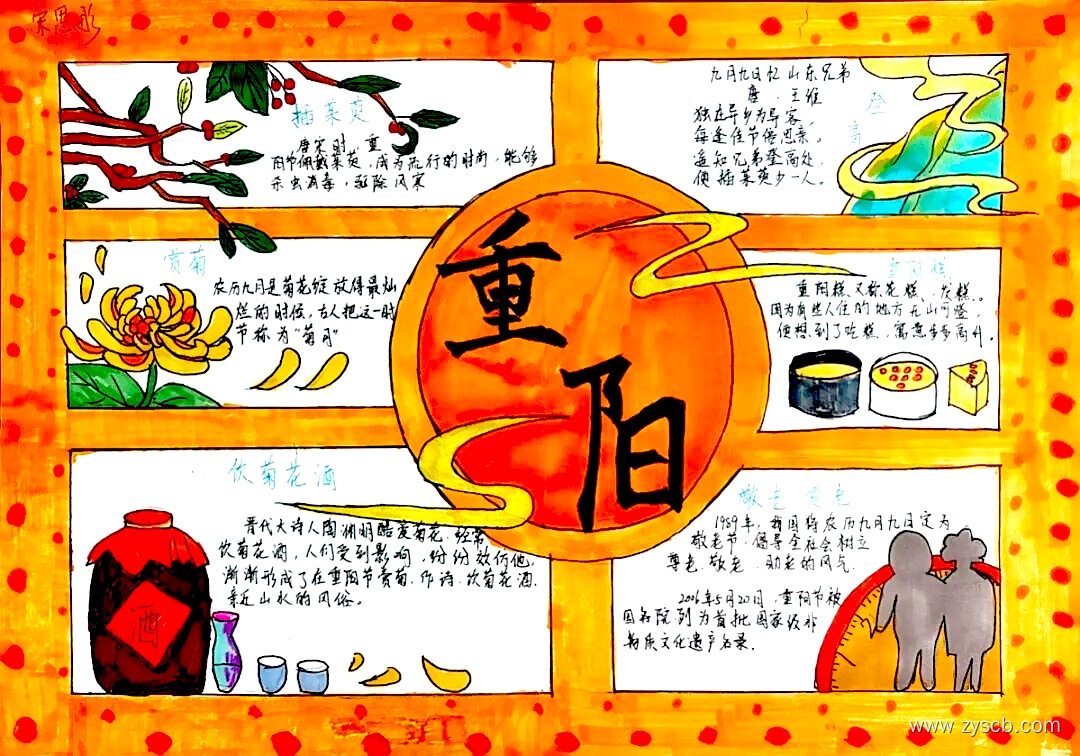 宋思彤
插茱萸
唐宋时,重
阳节佩戴茱萸,成为流行的时尚,能够
杀虫消毒,驱除风寒
九月九日忆山东兄弟
唐·王维
独在异乡为异客,
每逢佳节倍思亲。
遥知兄弟登高处,
便插茱萸少一人。
登
高
赏菊
农历九月是菊花绽放得最灿
烂的时候,古人把这一时
节称为“菊月”
重
阳
重阳糕
重阳糕,又称花糕、发糕。
因为有些人住的地方无山可登,
便想到了吃糕,寓意步步高升。
饮菊花酒
晋代大诗人陶渊明酷爱菊花,经常
饮菊花酒,人们受到影响,纷纷效仿他,
渐渐形成了在重阳节赏菊、作诗、饮菊花酒、
亲近山水的风俗。
酒
敬老
1989年,我国将农历九月九日定为
敬老节,倡导全社会树立
尊老、敬老、助老的风气
2006年5月20日,重阳节被
国务院列为首批国家级非
物质文化遗产名录。
www.zyscb.com